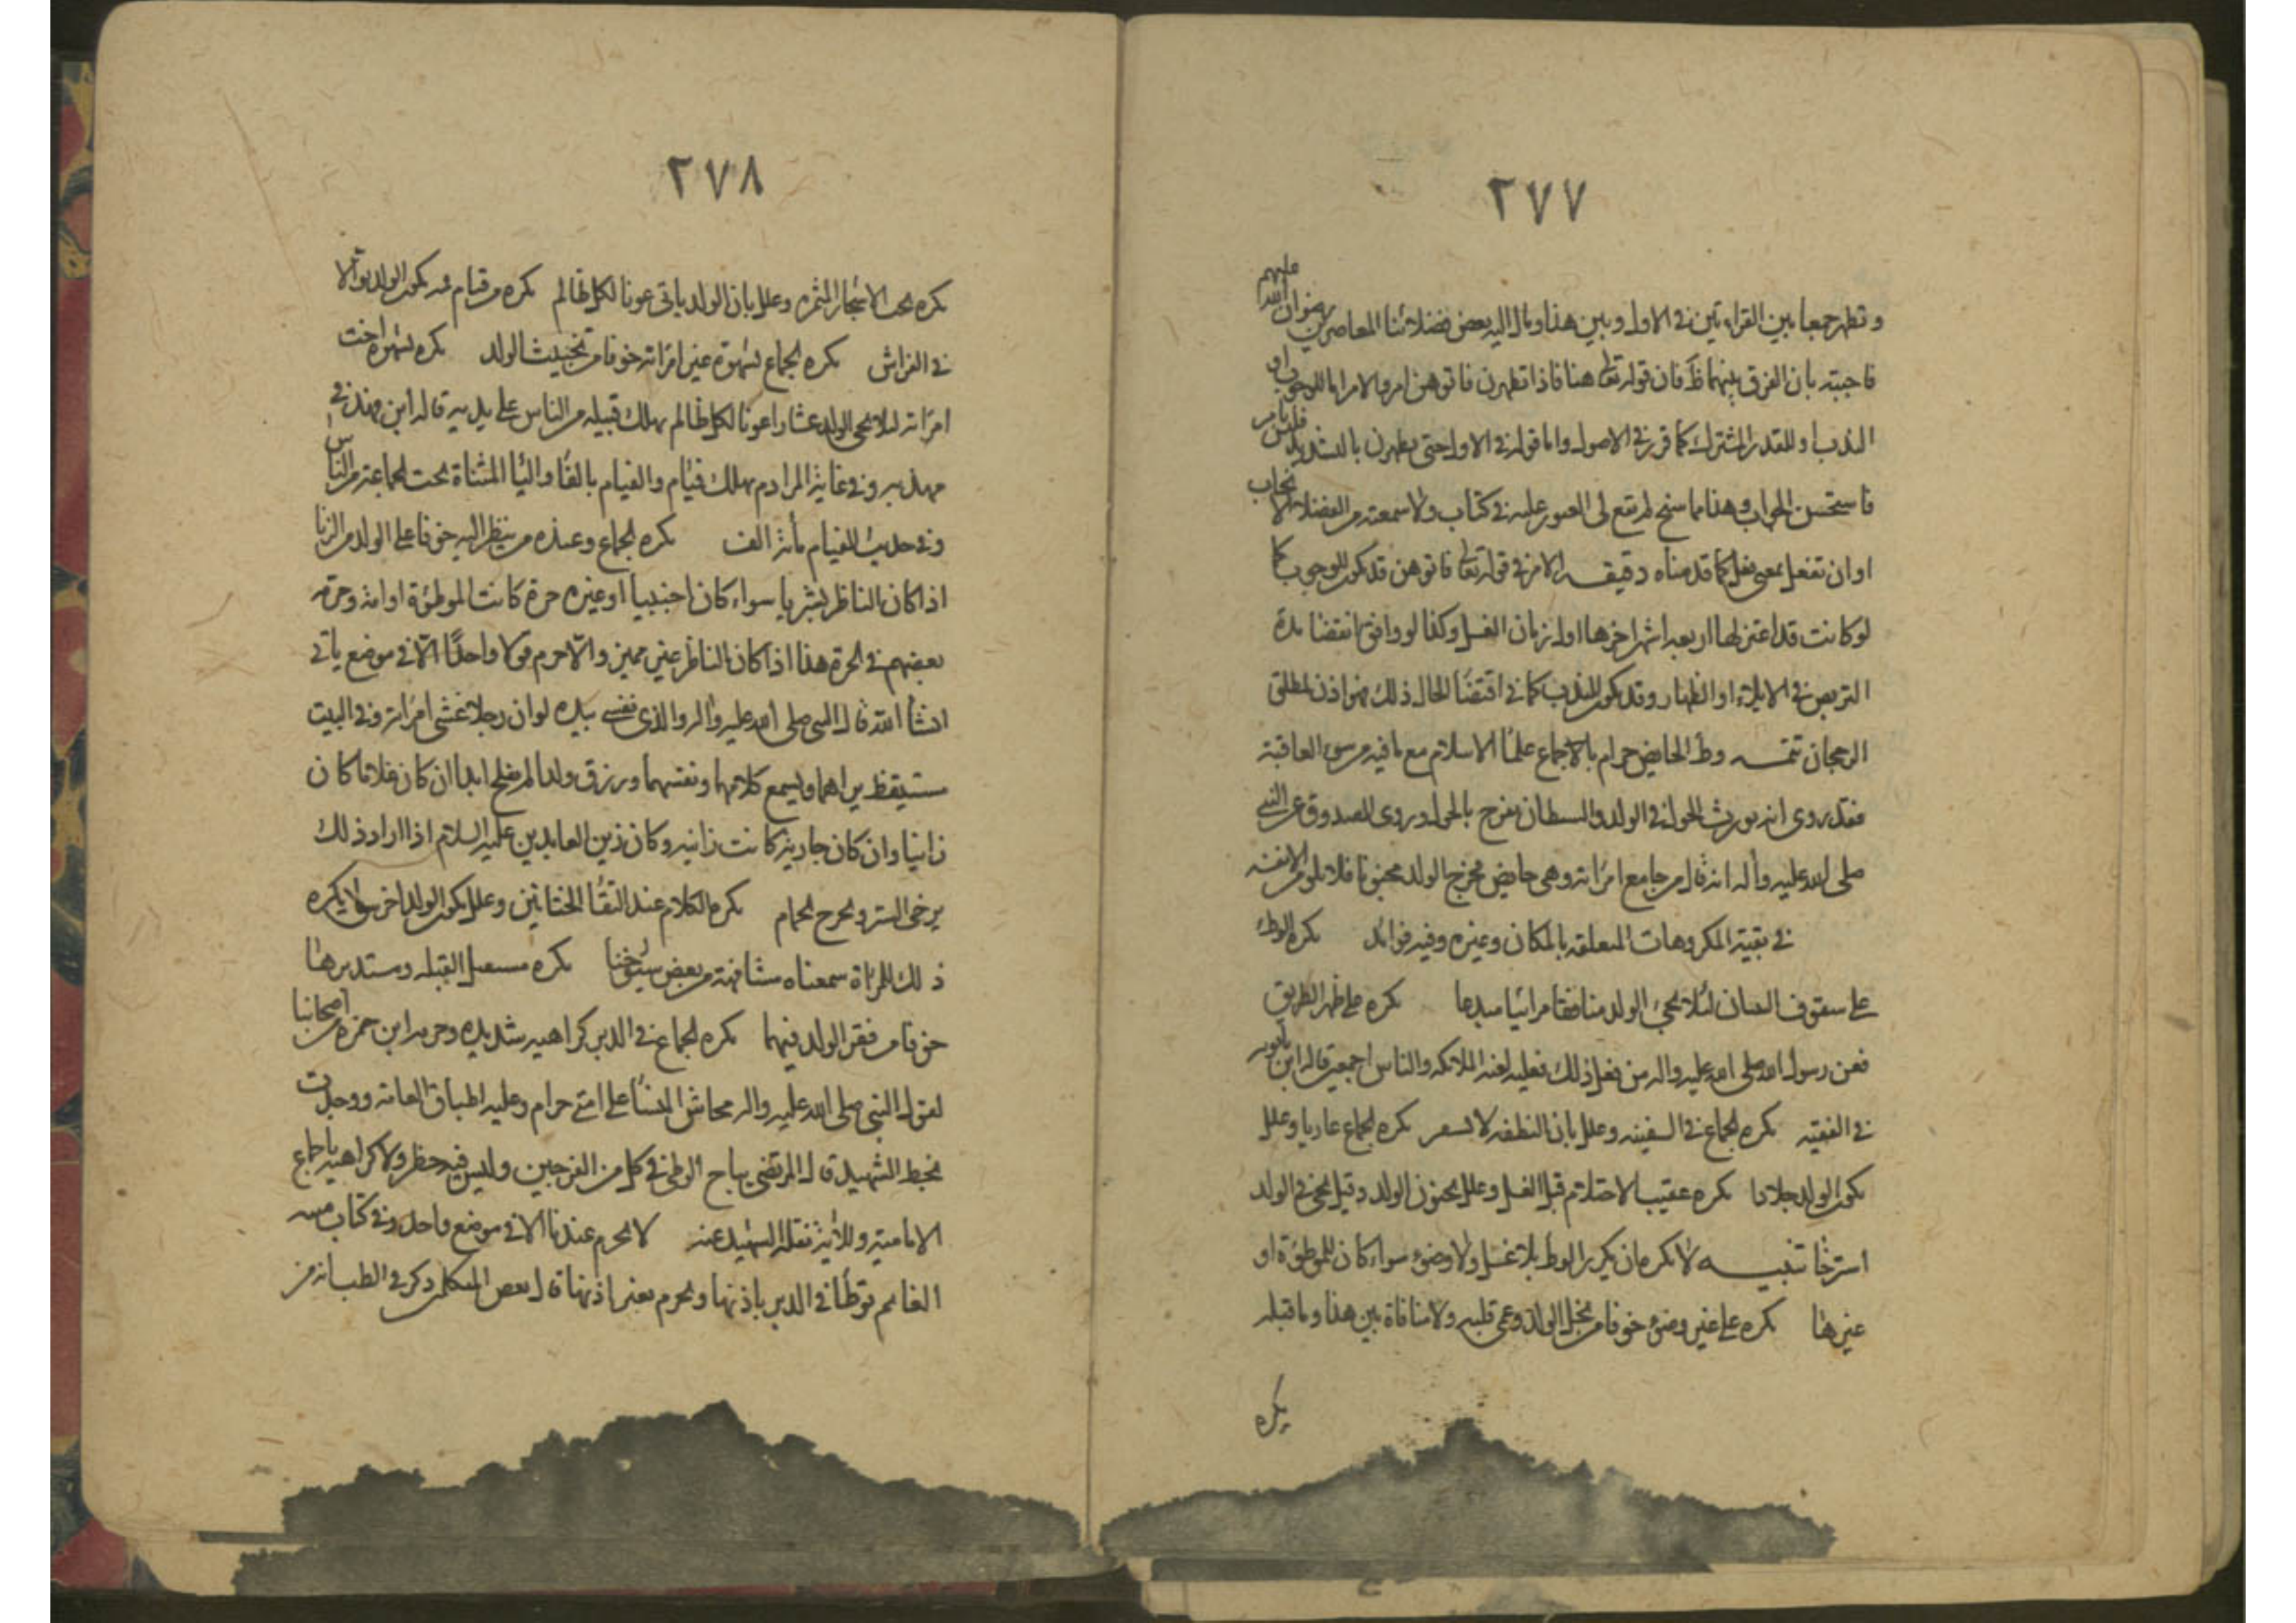 ٢٧٧
وتطهر جمعا بين القراءتين في الاول وبين هذا ومال اليه بعض فضلائنا المعاصرين رضوان الله عليهم
فاجبته بان الفرق بينهما ظ فان قوله تعالى هنا فاذا تطهرن فاتوهن امر والامر اما للوجوب او
الندب او للقدر المشترك كما قرر في الاصول واما قوله في الاول حتى يطهرن بالتشديد فليس بامر
فاستحسن الجواب وهذا مما سنح لم يقع لي العبور عليه في كتاب ولا سمعته من الفضلاء الا نجاب
او ان تفعل بمعنى فعل كما قدمناه دقيقه الامر في قوله تعالى فاتوهن قد يكون للوجوب كما
لو كانت قد اعتزلها اربعه اشهر اخرها اول زمان الغسل وكذا لو وافق انقضا مدة
التربص في الايلاء او الظهار وقد يكون للندب كما في اقتضا الحال ذلك فهو اذن لمطلق
الرجحان تتمه وطؤ الحايض حرام بالاجماع علما الاسلام مع ما فيه من سوء العاقبة
فقد روى انه يورث الحول في الولد والشيطان يفرح بالحول وروى الصدوق عن النبي
صلى الله عليه وآله انه قال من جامع امراته وهي حايض فخرج الولد مجنونا فلا يلومن الا نفسه
في بقية المكروهات المتعلقه بالمكان وغيره وفيه فوائد يكره الوطئ
على سقوف البنيان لئلا يجئ الولد منافقا مرائيا مبدعا يكره على ظهر الطريق
فعن رسول الله صلى الله عليه واله من فعل ذلك فعليه لعنة الله والملائكه والناس اجمعين قاله ابن بابويه
في الفقيه يكره الجماع في السفينه وعلل بان النطفه لا تستقر يكره الجماع عاريا وعلل
بكون الولد جلادا يكره عقيب الاحتلام قبل الغسل وعلل بجنون الولد وقيل يجئ في الولد
استرخا تنبيه لا يكره ان يكرر الوطء بلا غسل ولا وضوء سواء كان للموطؤة او
غيرها يكره على غير وضوء خوفا من بخل الولد وعمى قلبه ولا منافاة بين هذا وما قبله
يكره
٢٧٨
يكره تحت الاشجار المثمره وعلل بان الولد ياتي عونا لكل ظالم يكره من قيام فيكون الولد بوالا
في الفراش يكره الجماع بشهوة غير امراته خوفا من تخنيث الولد يكره بشهوة اخت
امراته لئلا يجئ الولد عشارا عونا لكل ظالم يهلك قبيله من الناس على يديه قاله ابن فهد في
مهذبه وفي غاية المرادم يهلك فئام والفيام بالفاء واليا المثناة تحت الجماعة من الناس
وفي حديث الفيام مائة الف يكره الجماع وعنده من ينظر اليه خوفا على الولد من الزنا
اذا كان الناظر بشريا سواء كان اجنبيا او غيره حرة كانت الموطؤة او امة وحرمه
بعضهم في الحرة هذا اذا كان الناظر غير مميز والا حرم قولا واحدًا الا في موضع ياتي
انشأ الله قال النبي صلى الله عليه وآله والذي نفسي بيده لو ان رجلا غشي امراته وفي البيت
مستيقظ يراهما ويسمع كلامهما ونفسهما ورزق ولدا لم يفلح ابدا ان كان غلاما كان
زانيا وان كان جارية كانت زانيه وكان زين العابدين عليه السلام اذا اراد ذلك
يرخي الستر ويخرج الخدام يكره الكلام عند التقا الختانين وعلل بكون الولد اخرس ولا يكره
ذلك للمراة سمعناه مشافهة من بعض شيوخنا يكره مستقبل القبله ومستدبرها
خوفا من فقر الولد فيهما يكره الجماع في الدبر كراهيه شديده وحرمه ابن حمزه من اصحابنا
لقول النبي صلى الله عليه واله محاش النسا على امتي حرام وعليه اطباق العامه ووجدت
بخط الشهيد قال المرتضى يباح الوطئ في كل من الفرجين وليس فيه حظر ولا كراهيه باجماع
الامامية وللآية نقله الشهيد عنه لا يحرم عندنا الا في موضع واحد وفي كتاب
توطأ في الدبر باذنها ويحرم بغير اذنها قال بعض المتكلمين ذكر في الطب انه من